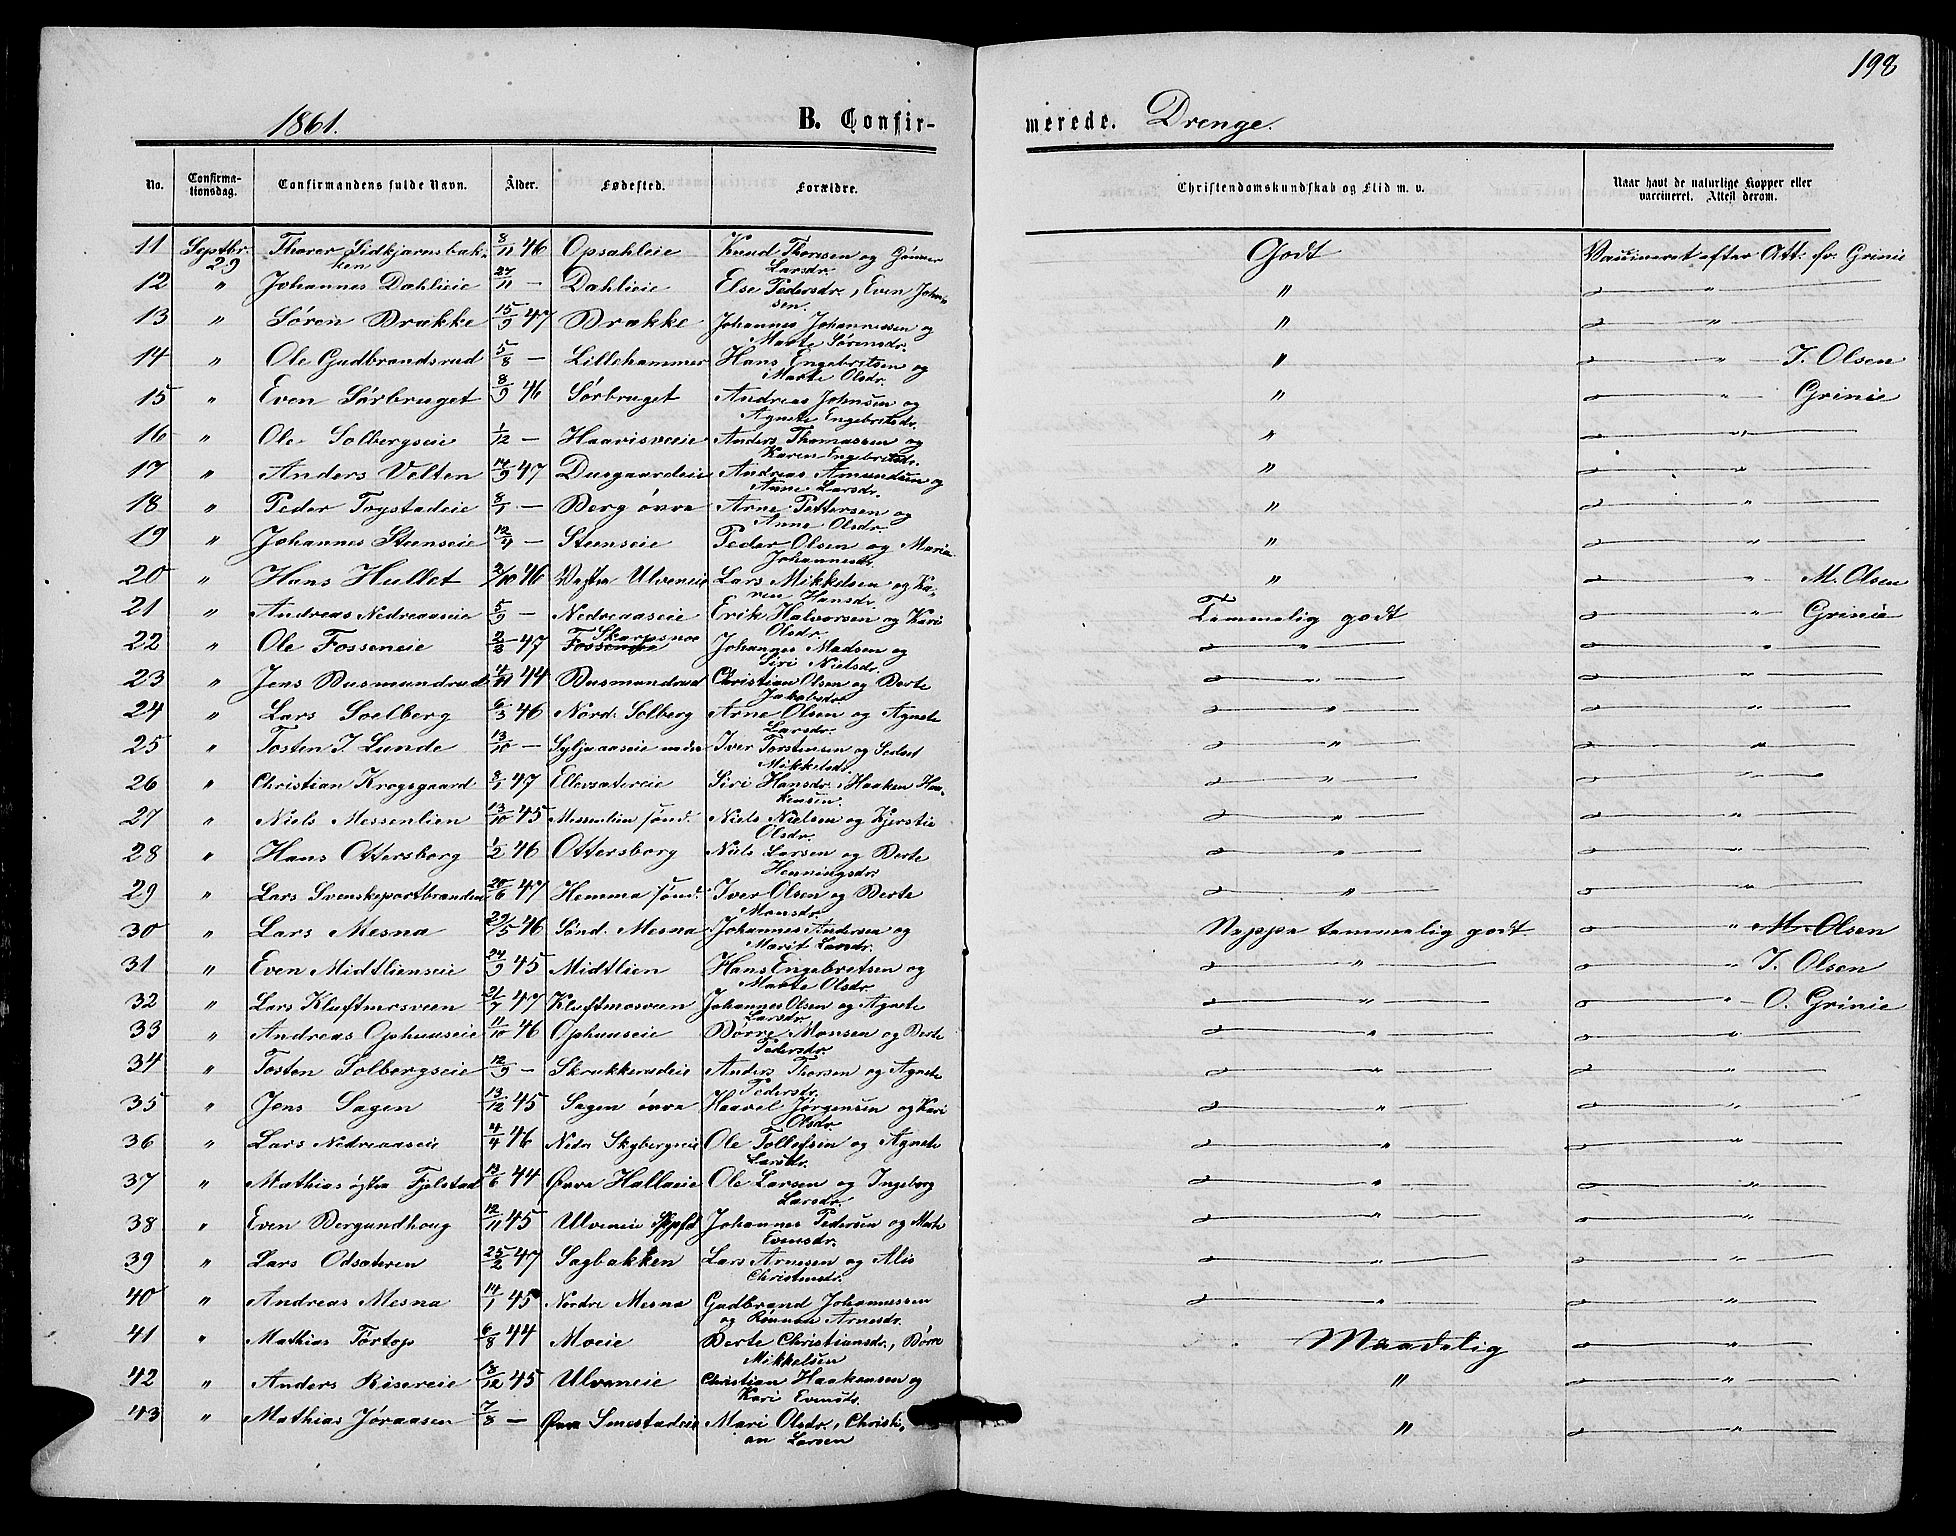 198
1861. B. Confir- merede. Drenge.
No. Confirma-tionsdag. Confirmandens fulde Navn. Alder. Fødested. Forældre. Christendomskundskab og Flid m. v. Naar havt de naturlige Kopper eller vaccineret. Attest derom.
11 Septbr. 29 Thorer Sidkjærnsbak- 8/11 46 Opsahleie Knud Thorsen og Gønner Godt Vaccineret efter Att: fr. Grinie
ken Larsdr.
12 " Johannes Dahlieie 27/11 — Dahlieie Else Pedersdr., Even John- " — " —
sen.
13 " Søren Brække 15/9 47 Brække Johannes Johannessen og " — " —
Marte Sørensdr.
14 " Ole Gudbrandsrud 5/8 — Lillehammer Hans Engebretsen og " — " — I. Olsen
Marte Olsdr.
15 " Even Sørbruget 8/9 46 Sørbruget Andreas Johnsen og " — " — Grinie
Agnete Engebretsdr.
16 " Ole Solbergseie 1/12 — Haavisveeie Anders Thomassen og " — " —
Karen Engebretsdr.
17 " Anders Velten 14/9 47 Dusgaardeie Andreas Amundsen og " — " —
Anne Larsdr.
18 " Peder Toystadeie 8/1 — Berg øvre Arne Pettersen og " — " —
Anne Olsdr.
19 " Johannes Steenseie 12/4 — Steenseie Peder Olsen og Maria " — " —
Johannesdr.
20 " Hans Hullet 2/10 46 Vestre Ulveneie Lars Mikkelsen og Ka- " — " — M. Olsen
ren Hansdr.
21 " Andreas Nedreaaseie 5/9 — Nedreaaseie Erik Halvorsen og Kari Temmelig godt — " — Grinie
Olsdr.
22 " Ole Fosseneie 2/2 47 Skarpsnoe Johannes Madsen og — " — — " —
Siri Nielsdr.
23 " Jens Busmundrud 4/11 44 Busmundrud Christian Olsen og Berte — " — — " —
Jakobsdr.
24 " Lars Soelberg 6/3 46 Nord. Solberg Arne Olsen og Agnete — " — — " —
Larsdr.
25 " Tosten I. Lunde 13/10 — Syljuaaseie nedre Iver Torstensen og — " — — " —
Mikkelsdr.
26 " Christian Krogsgaard 8/1 47 Ellevsætereie Siri Hansdr., Haaken Haa- — " — — " —
kensen.
27 " Niels Messenlien 13/10 45 Messenlien sønd. Niels Nielsen og Kjerstie — " — — " —
Olsdr.
28 " Hans Ottersborg 1/2 46 Ottersborg Niels Larsen og Berte — " — — " —
Henningsdr.
29 " Lars Svenskeportbrænden 20/6 47 Hemma sønd. Iver Olsen og Berte — " — — " —
Monsdr.
30 " Lars Mesna 29/5 46 Sønd. Mesna Johannes Andersen og Neppe temmelig godt — " — M. Olsen
Marit Larsdr.
31 " Even Midtlienseie 24/9 45 Midtlien Hans Engebretsen og — " — — " — I. Olsen
Marte Olsdr.
32 " Lars Kluftmosveen 21/7 47 Kluftmosveen Johannes Olsen og Agnete — " — — " — O. Grinie
Larsdr.
33 " Andreas Ophuuseie 11/10 46 Ophuuseie Børre Monsen og Berte — " — — " —
Pedersdr.
34 " Tosten Solbergseie 12/9 — Skrukkerudeie Anders Thorsen og Agnete — " — — " —
Pedersdr.
35 " Jens Sagen 13/12 45 Sagen øvre Haavel Jørgensen og Kari — " — — " —
Olsdr.
36 " Lars Nedreaaseie 4/4 46 Nedr. Skybergseie Ole Tollefsen og Agnete — " — — " —
Larsdr.
37 " Mathias østre Fjelstad 13/6 44 Øvre Hallaeie Ole Larsen og Ingeborg — " — — " —
Larsdr.
38 " Even Bergundhoug 12/11 45 Ulveneie Johannes Pedersen og Marte — " — — " —
Evensdr.
39 " Lars Odsæteren 25/2 47 Sagbakken Lars Arnesen og Alis — " — — " —
Christensdr.
40 " Andreas Mesna 14/1 45 Nordre Mesna Gudbrand Johannessen — " — — " —
og Rønnoue Arnesdr.
41 " Mathias Tørtop 6/8 44 Moeie Berte Christiansdr., Børre Maadelig — " —
Mikkelsen
42 " Anders Risereie 18/12 45 Ulveneie Christian Haakensen og " — " —
Kari Evensdr.
43 " Mathias Jøraasen 7/8 — Øvre Smestadeie Mari Olsdr., Christi- " — " —
an Larsen